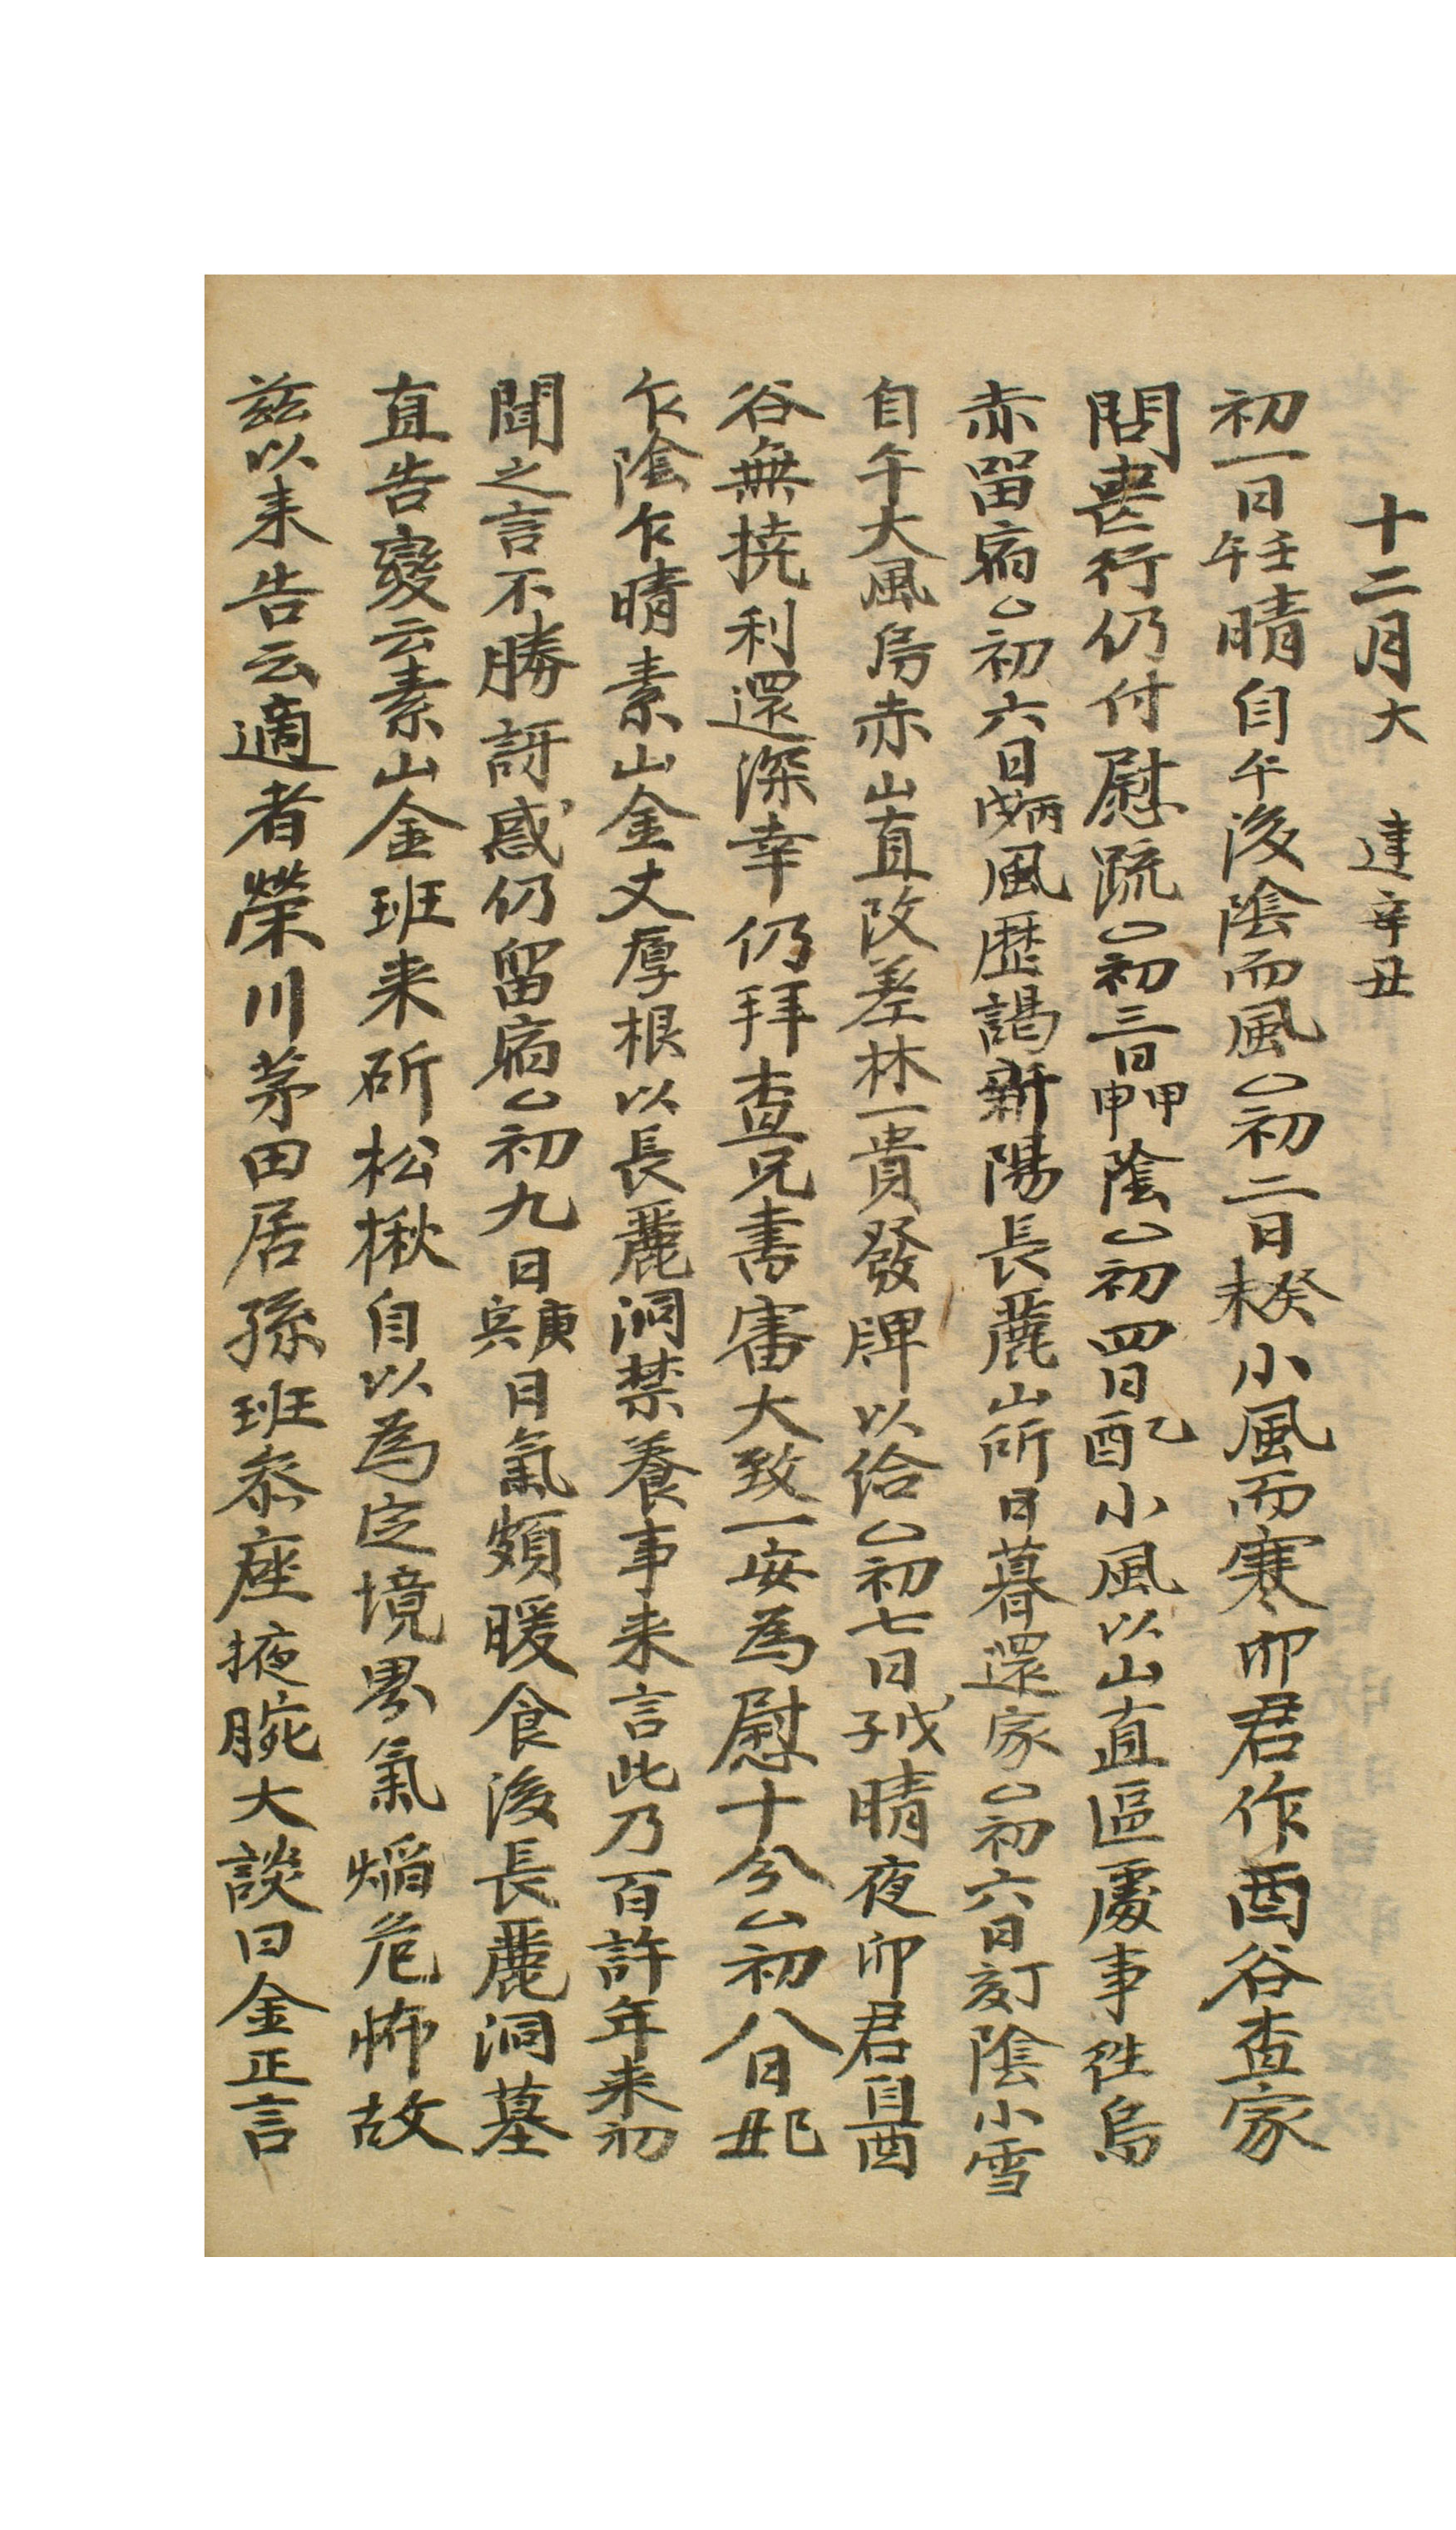 十二月大 建辛丑
初一日壬午晴自午後陰而風○初二日癸未小風而寒卯君作酉谷査家
問喪行仍付慰疏○初三日甲申陰○初四日乙酉小風以山直區處事徃烏
赤留宿○初六日丙戌風歷謁新陽長麓山所日暮還家○初六日丁亥陰小雪
自午大風烏赤山直改差林一貴發牌以給○初七日戊子晴夜卯君自酉
谷無撓利還深幸仍拜査兄書審大致一安為慰十分○初八日己丑
乍陰乍晴素山金丈厚根以長麓洞禁養事来言此乃百許年来初
聞之言不勝訝惑仍留宿○初九日庚寅日氣頗暖食後長麓洞墓
直告變云素山金班来斫松楸自以為定境界氣焰危怖故
玆以来告云適者榮川茅田居孫班叅座掖腕大談曰金正言